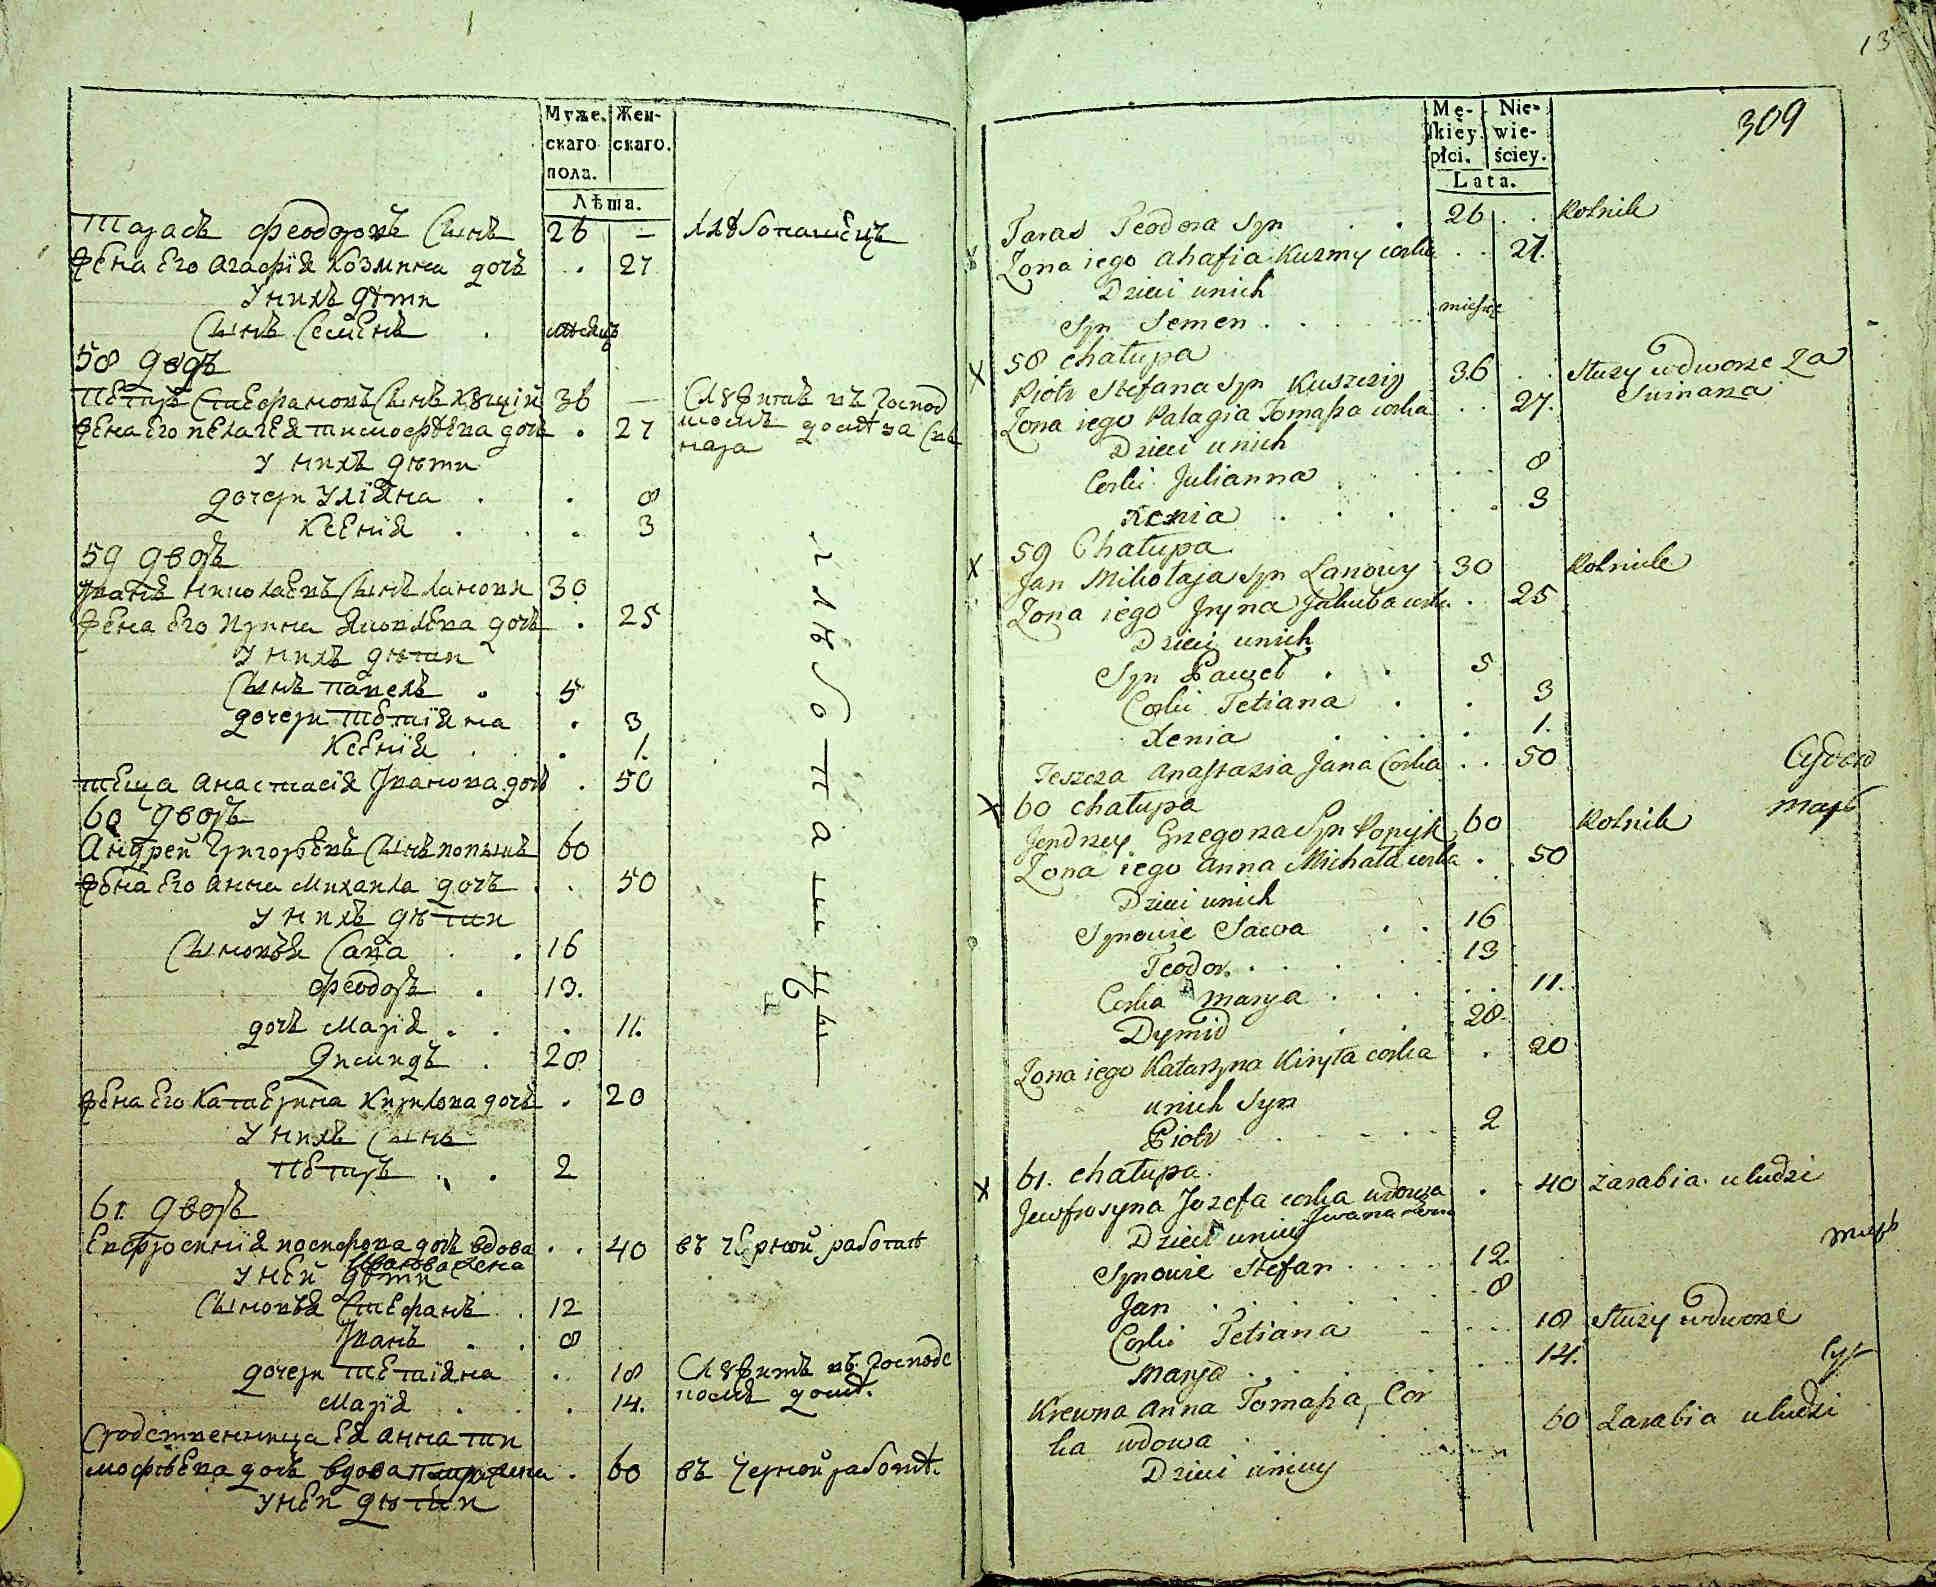 Муже-
скаго
пола.
Жен-
скаго.
Лѣта.
Тарасъ Феодоровъ Сынъ 26 — хлѣбопашецъ
Жена Его Агафїя Козмина дочь . 27
У нихъ дѣти
Сынъ Семенъ . месяцъ
58 дворъ
Петръ Стефановъ Сынъ Кущїй 36 — Служитъ въ Господ
Жена Его пелагея тимофѣева дочь . 27 скомъ домѣ за
У нихъ дѣти
дочери Улїяна . . 8
Ксенїя . . 3
59 дворъ
Іванъ николаевъ Сынъ Ланови 30
Жена Его Ирина Яковлева дочь . 25
У нихъ дѣти
Сынъ павелъ . 5
дочери тетїяна . 3
Ксенїя . . 1.
теща Анастасїя Іванова дочь . 50
60 дворъ
Андрей Григорьевъ Сынъ попыкъ 60
Жена Его Анна Михаила дочь . . 50
У нихъ дѣти
Сыновья Сава . . 16
Феодоръ . 13.
дочь Марїя . . . 11.
Димидъ . 28
Жена Его Катаерина Кирилова дочь . 20
У нихъ Сынъ
Петръ . . 2
61. дворъ
Евфросинїя иосифова дочь вдова . . 40 въ черной работѣ
Іванова жена
У ней дѣти
Сыновья Стефанъ . 12
Іванъ . . 8
дочери тетїяна . . 18 Служитъ въ Господс
Марїя . . 14. комъ домѣ.
Сродственница Ея Анна тим
мофѣева дочь вдова . 60 въ черной работѣ.
У ней дѣти
хлѣбопашцы
13
309
Mę-
skiey
płci.
Nie-
wie-
ściey.
Lata.
Taras Teodora Syn . . 26 . . Rolnik
Żona iego Ahafia Kuzmy corka . . 27.
Dzieci unich
Syn Semen . . . . miesiąc
58 chałupa
Piotr Stefana Syn Kuszczij 36 . . Służy wdworze Za
Żona iego Palagia Tomasza corka . . 27. Surmana
Dzieci unich
Corki Julianna . . . 8
Xenia . . . . . . 3
59 Chałupa
Jan Mikołaja Syn Lanowy 30 Rolnik
Żona iego Jryna Jakuba corka . 25
Dzieci unich
Syn Paweł . . 5
Corki Tetiana . . 3
Xenia . . . . 1.
Teszcza Anastazia Jana Corka . . 50
60 chałupa
Jendrzey Grzegorza Syn Popyk 60 Rolnik
Żona iego Anna Michała corka . 50
Dzieci unich
Synowie Sawa . . 16
Teodor . . . . 13
Corka Marya . . . . . 11.
Dymid . . 28
Żona iego Katarzyna Kiryła corka . 20
unich Syn
Piotr . . . . 2
61. chałupa
Jewfrosyna Jozefa corka wdowa . . 40 zarabia u ludzi
Jwana żona
Dzieci uniey
Synowie Stefan . . . . 12.
Jan . . . . . 8
Corki Tetiana . . . . 18 Służy wdworze
Marya . . . . . 14.
Krewna Anna Tomasza Cor
ka wdowa . . . . 60 Zarabia u ludzi
Dzieci uniey